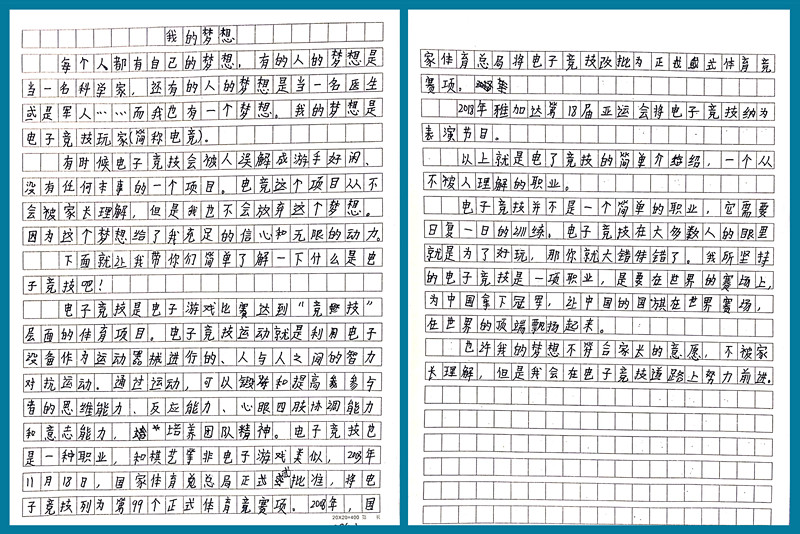 我的梦想
每个人都有自己的梦想,有的人的梦想是
当一名科学家,还有的人的梦想是当一名医生
或是军人……而我也有一个梦想。我的梦想是
电子竞技玩家(简称电竞)。
有时候电子竞技会被人误解成游手好闲、
没有任何本事的一个项目。电竞这个项目从不
会被家长理解,但是我也不会放弃这个梦想。
因为这个梦想给了我充足的信心和无限的动力。
下面就让我带你们简单了解一下什么是电
子竞技吧!
电子竞技是电子游戏比赛达到“竞技”
层面的体育项目。电子竞技运动就是利用电子
设备作为运动器械进行的、人与人之间的智力
对抗运动。通过运动,可以锻炼和提高参与
者的思维能力、反应能力、心眼四肢协调能力
和意志能力,培养团队精神。电子竞技也
是一种职业,和棋艺等非电子游戏类似,2003年
11月18日,国家体育总局正式批准,将电
子竞技列为第99个正式体育竞赛项。2008年,国
家体育总局将电子竞技改批为正式体育竞
赛项。
2018年雅加达第18届亚运会将电子竞技纳为
表演节目。
以上就是电子竞技的简单介绍,一个从
不被人理解的职业。
电子竞技并不是一个简单的职业,它需要
日复一日的训练。电子竞技在大多数人的眼里
就是为了好玩,那你就大错特错了。我所坚持
的电子竞技是一项职业,是要在世界的赛场上,
为中国拿下冠军,让中国的国旗在世界赛场,
在世界的顶端飘扬起来。
也许我的梦想不符合家长的意愿,不被家
长理解,但是我会在电子竞技道路上努力前进。
20X20=400